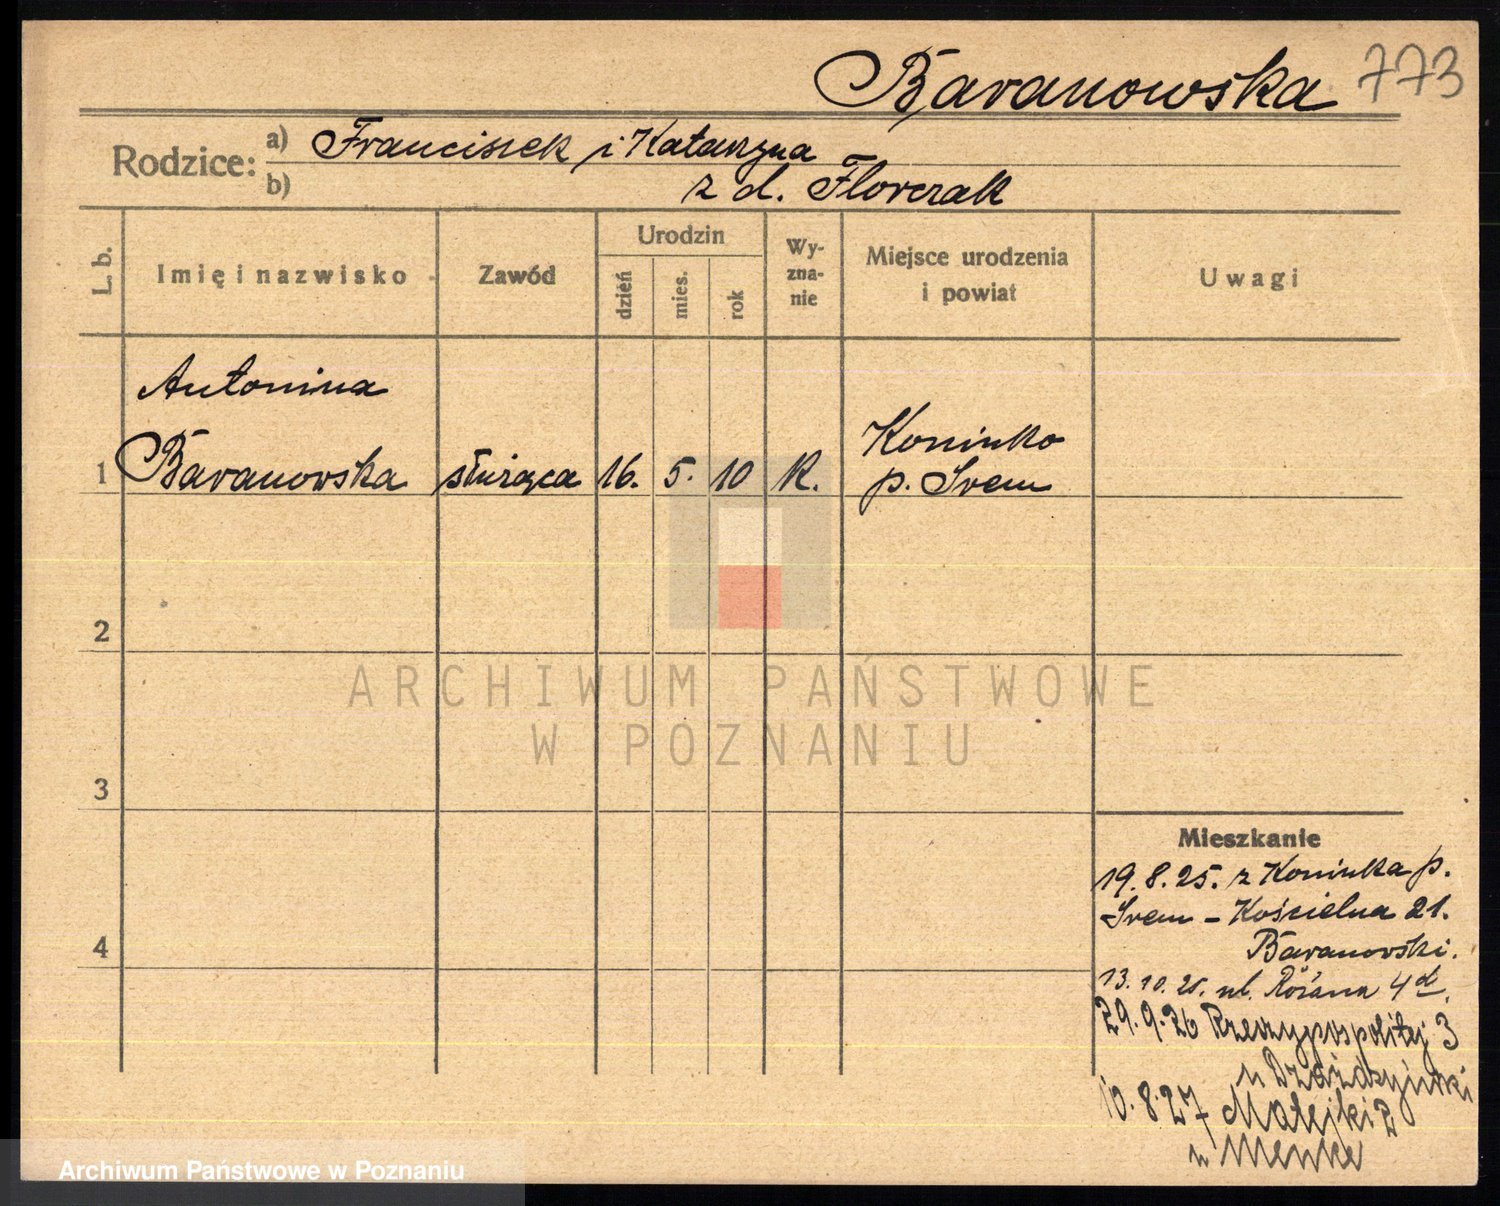 Baranowska 773
Rodzice: a) Franciszek i Katarzyna
b) z d. Florczak
L. b. Imię i nazwisko Zawód Urodzin dzień mies. rok Wyznanie Miejsce urodzenia i powiat Uwagi
Antonina
1 Baranowska służąca 16. 5. 10 K. Koninko
p. Śrem
2
3
4
Mieszkanie
19.8.25. z Koninka p.
Śrem – Kościelna 21.
Baranowski.
13.10.25. ul. Różana 4d.
29.9.26 Rzeczypospolitej 3
u Drożdżyński
10.8.27 Matejki 2
u Menke
ARCHIWUM PAŃSTWOWE
W POZNANIU
Archiwum Państwowe w Poznaniu